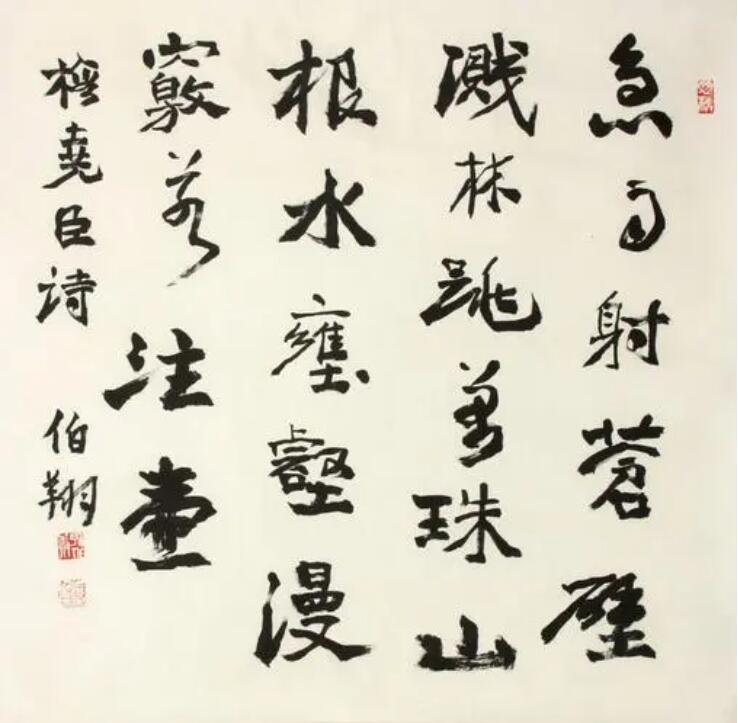 急雨射蒼壁
濺林跳萬珠山
根水壅壑漫
竅若注壺
梅堯臣詩 伯翔